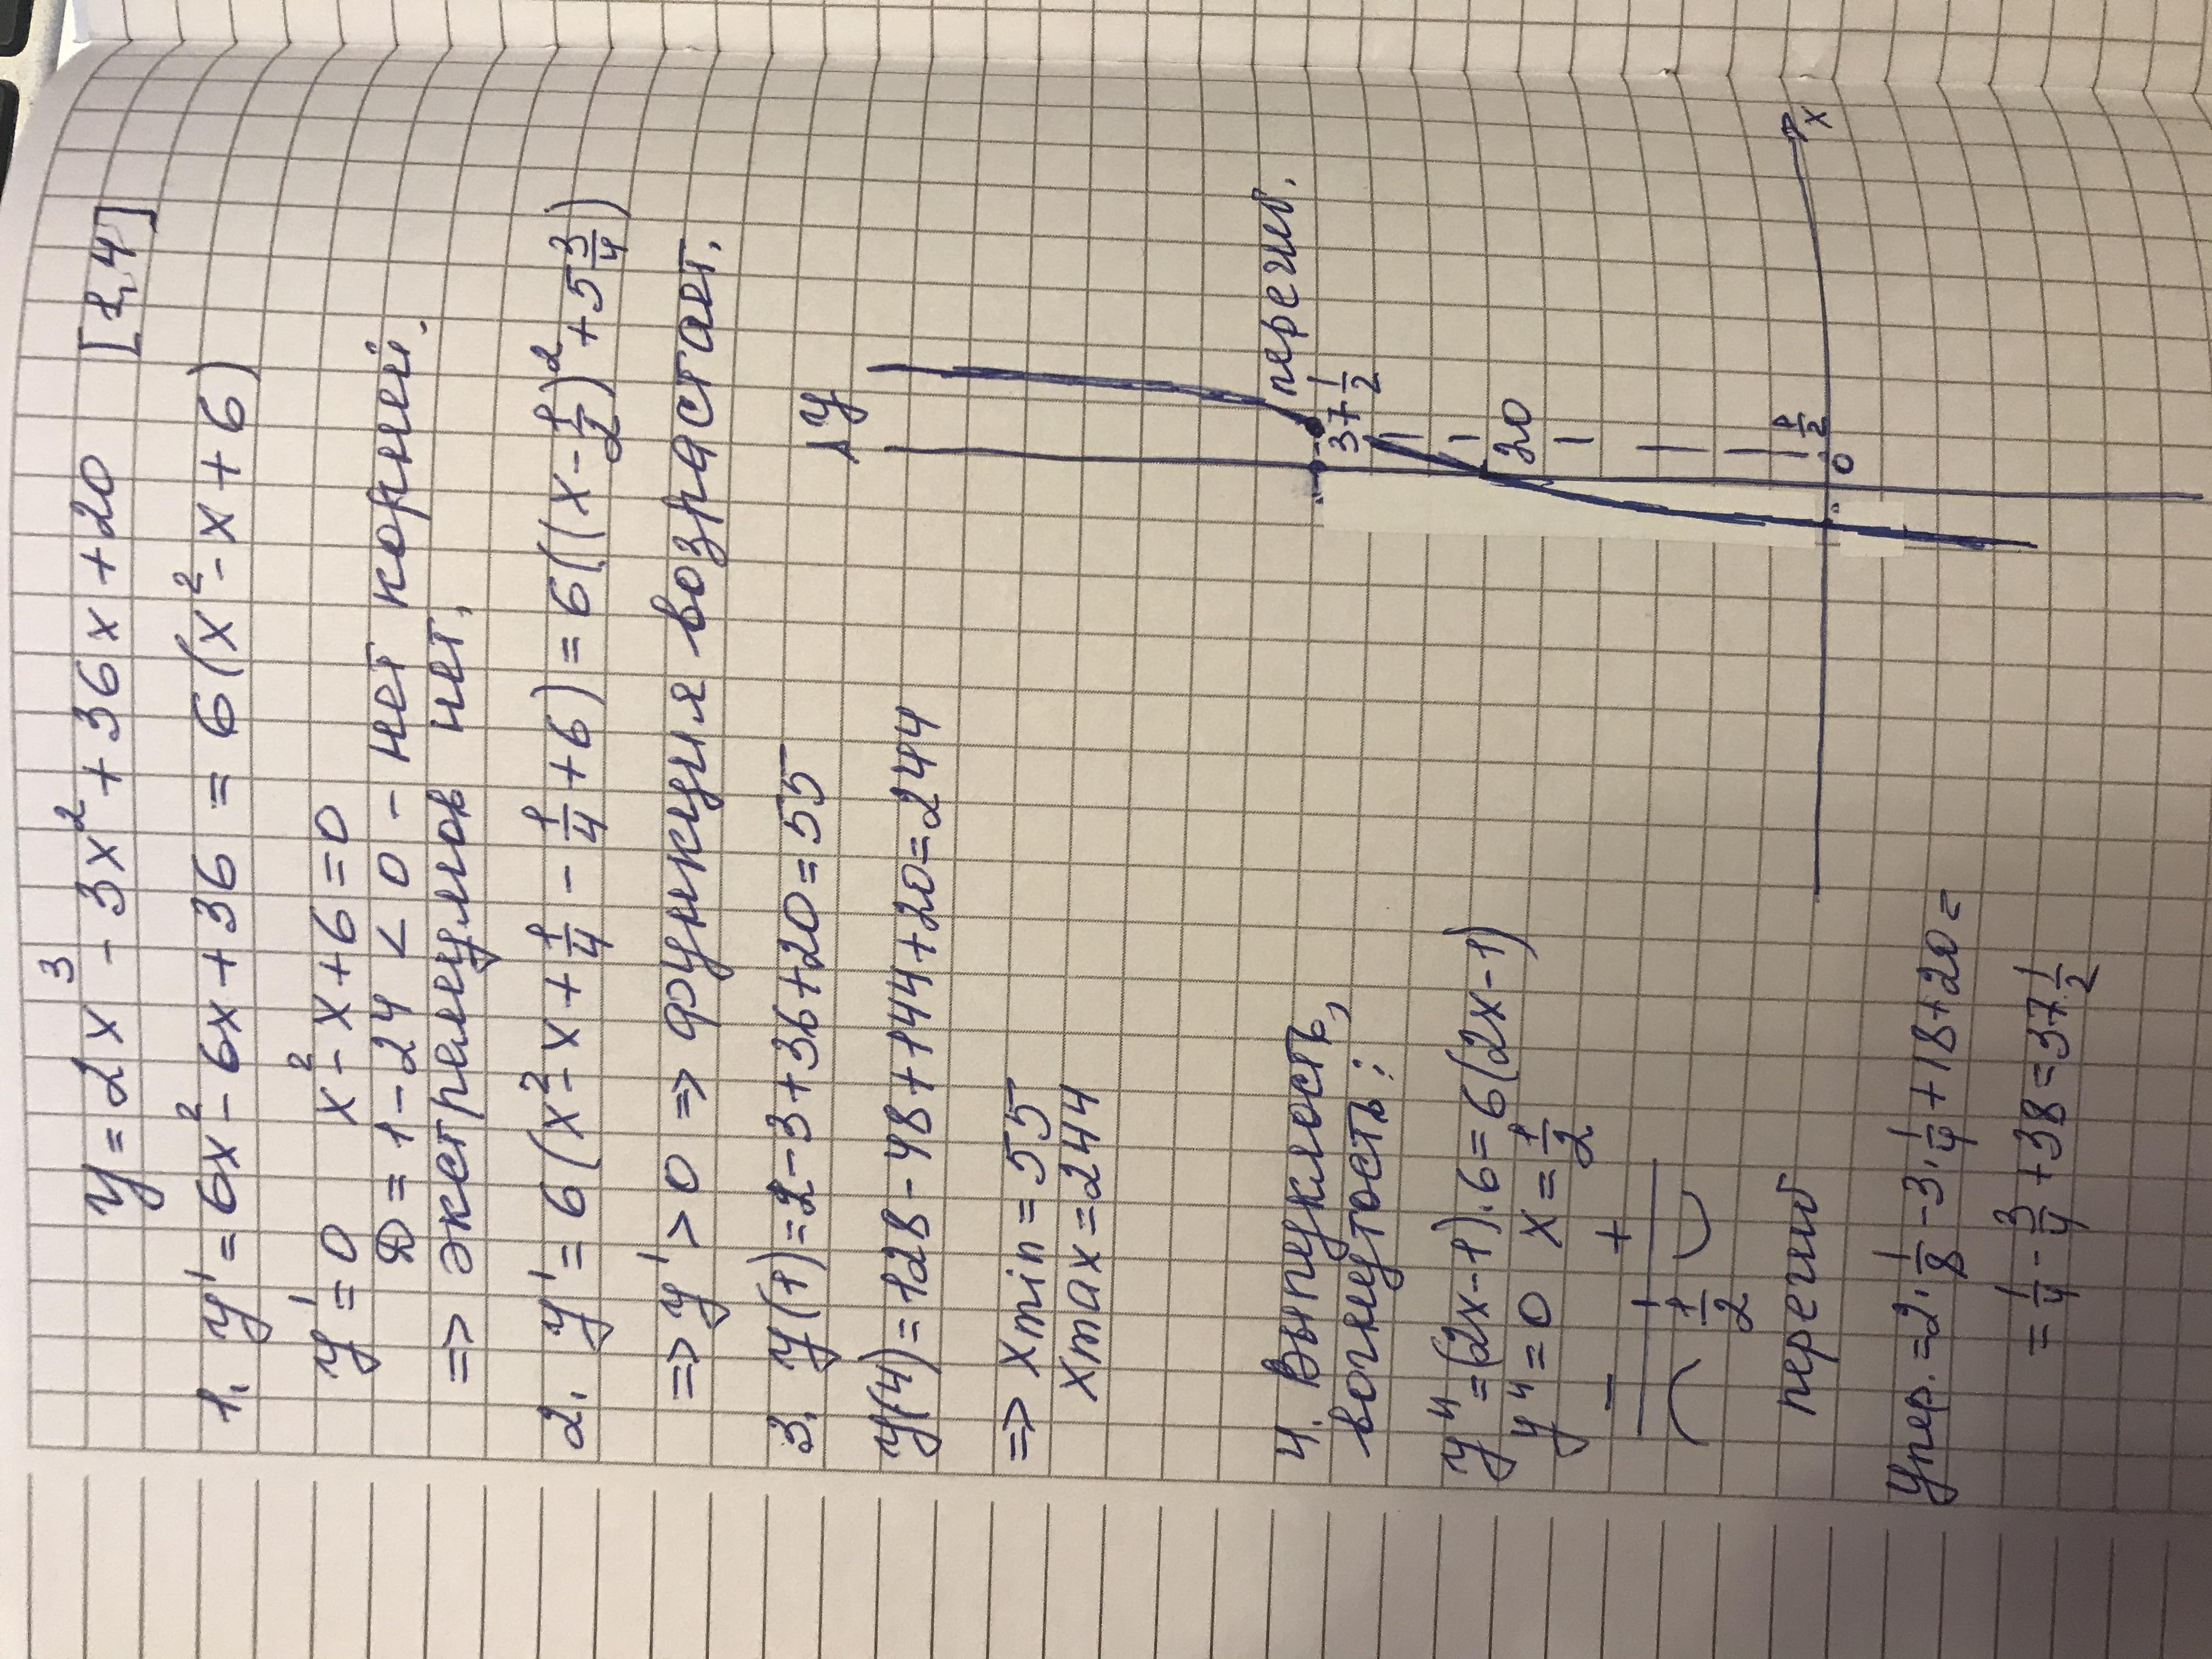 y = 2x³ - 3x² + 36x + 20 [1,4]
1. y' = 6x² - 6x + 36 = 6(x² - x + 6)
y' = 0 x² - x + 6 = 0
D = 1 - 24 < 0 - нет корней.
=> экстремумов нет.
2. y' = 6(x² - x + 1/4 - 1/4 + 6) = 6((x - 1/2)² + 5 3/4)
=> y' > 0 => функция возрастает.
3. y(1) = 2 - 3 + 36 + 20 = 55
y(4) = 128 - 48 + 144 + 20 = 244
=> xmin = 55
xmax = 244
4. Выпуклость,
вогнутость:
y" = (2x - 1)·6 = 6(2x - 1)
y" = 0 x = 1/2
- +
1/2
перегиб
yпер. = 2·1/8 - 3·1/4 + 18 + 20 =
= 1/4 - 3/4 + 38 = 37 1/2
y
перегиб.
37 1/2
20
1/2
0
x